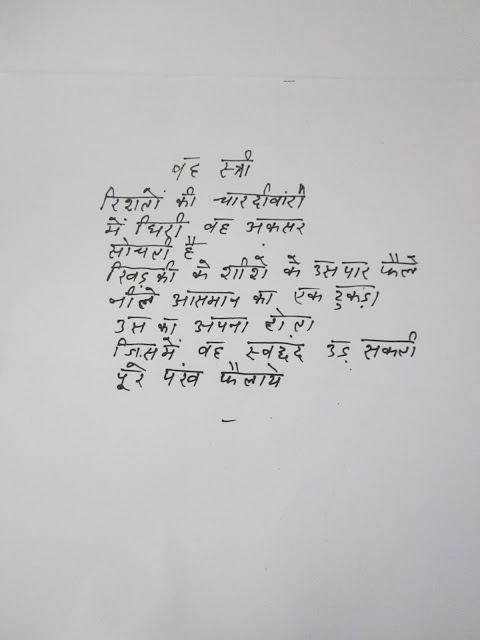 वह स्त्री
रिशतों की चारदीवांरी
में घिरी वह अकसर
सोचती है
खिड़की के शीशे के उस पार फैले
नीले आसमान का एक टुकड़ा
उस का अपना होता
जिसमें वह स्वछंद उड़ सकती
पूरे पंख फैलाये